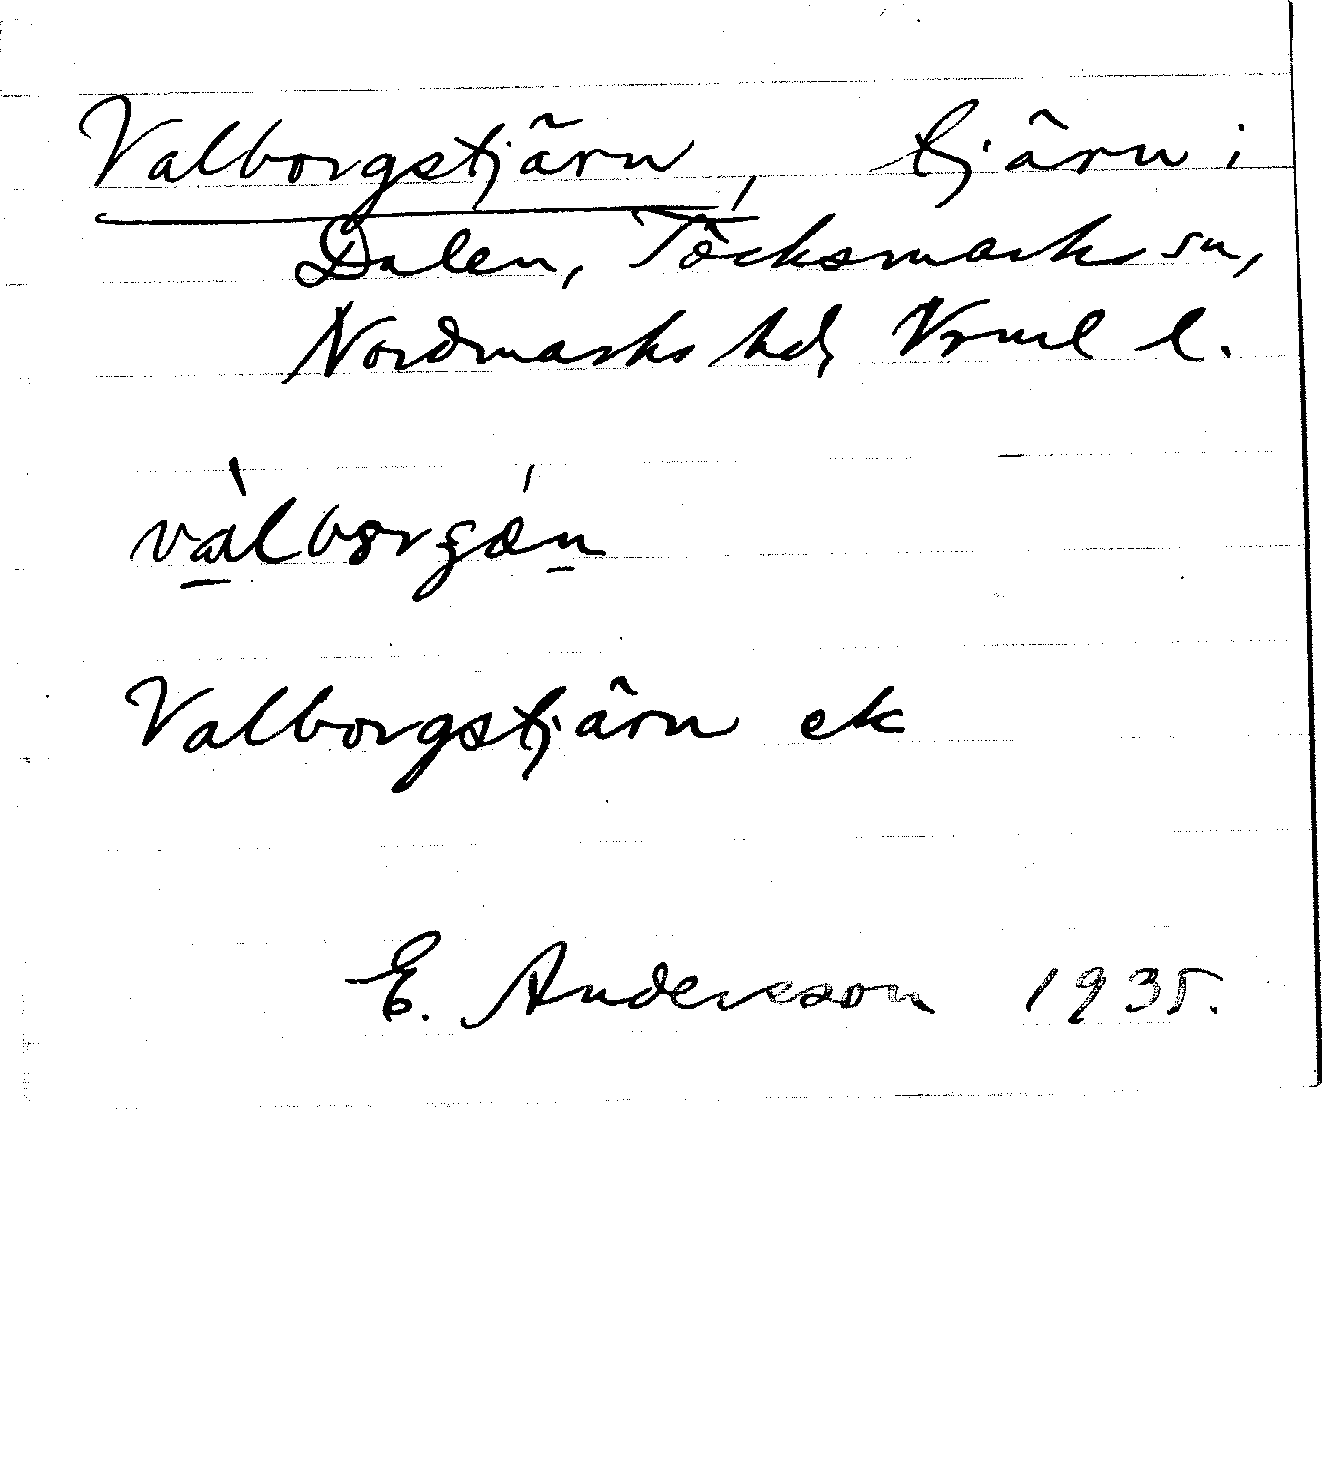 Valborgstjärn, tjärn i
Dalen, Töcksmarks sn,
Nordmarks hd, Vrml l.
Valborgstjärn ek
E. Andersson 1935.